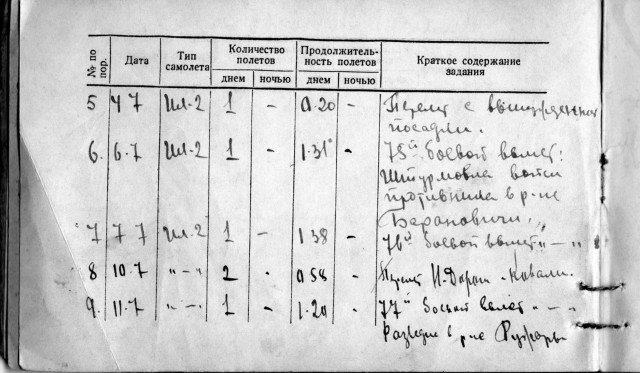 № по пор. Дата Тип самолета Количество полетов Продолжительность полетов Краткое содержание задания
днем ночью днем ночью
5 4 7 Ил-2 1 - 0.20 - с вынужденной
посадки.
6. 6.7 Ил-2 1 - 1.31 - 75й боевой вылет:
Штурмовка войск
противника в р-не
Барановичи.
7 7 7 Ил-2 1 - 1 38 - 76й боевой вылет " — "
8 10.7 " — " 2 - 0 58 -
9. 11.7 " — " 1 - 1.20 - 77й боевой вылет " — "
в р-не Ружаны